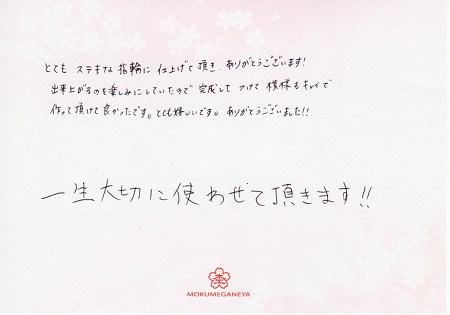 とても ステキな 指輪に 仕上げて 頂き、ありがとうございます!
出来上がるのを楽しみにしていたので 完成して つけて 模様もキレイで
作って頂けて良かったです。とても嬉しいです。ありがとうございました!!
一生大切に使わせて頂きます!!
MOKUMEGANEYA